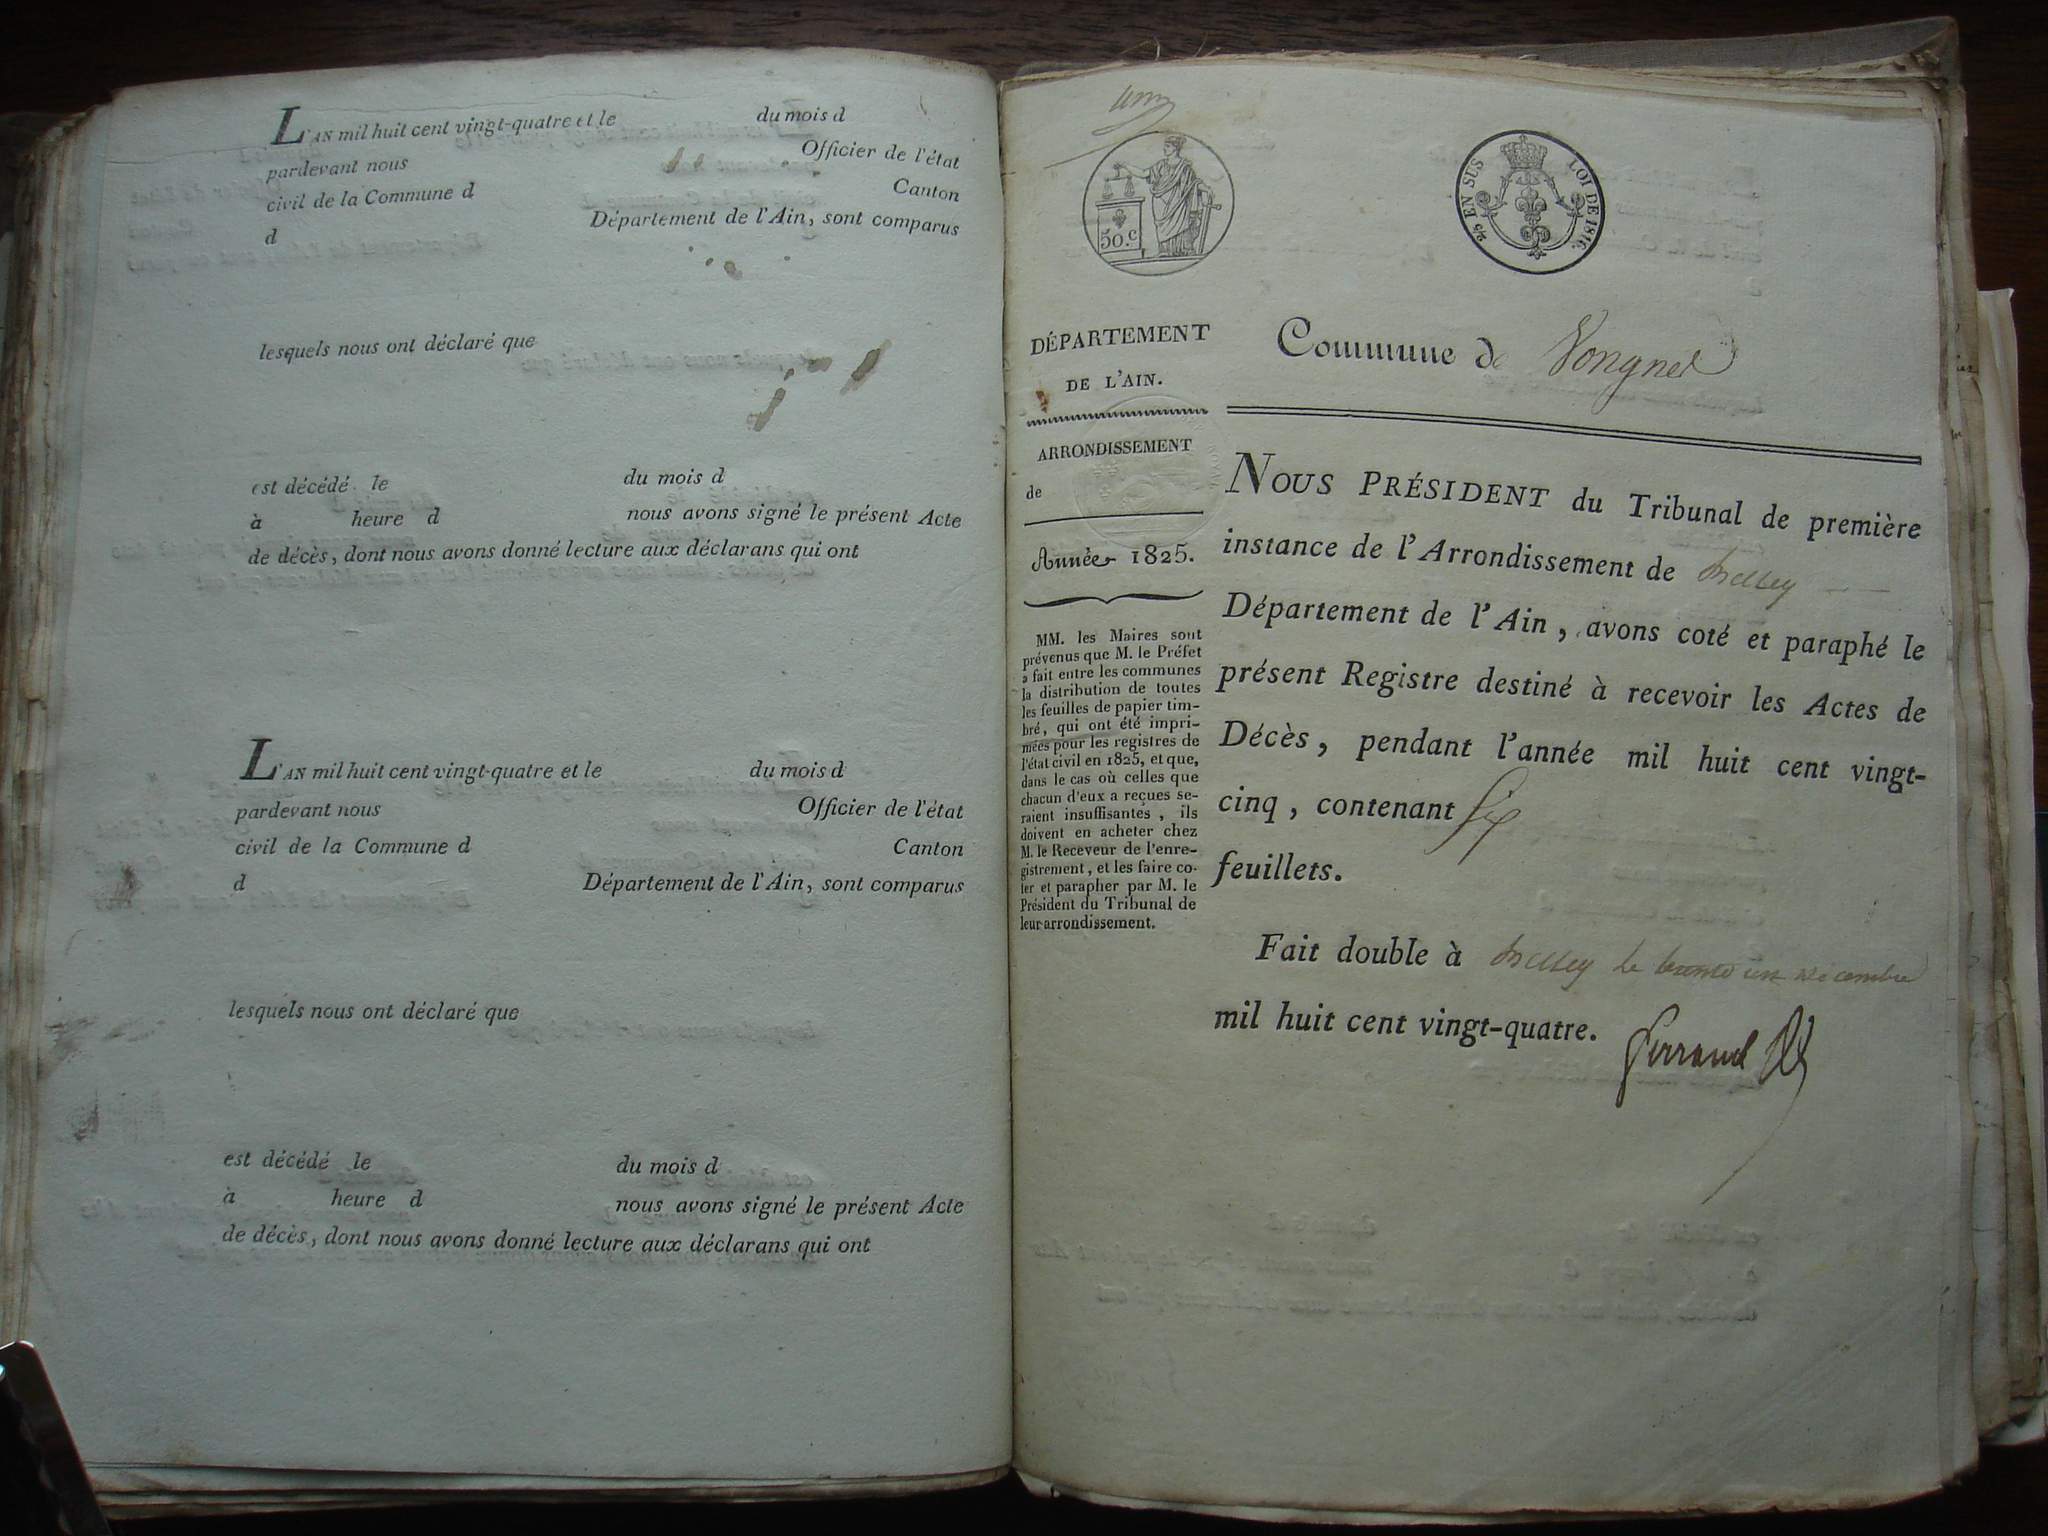 L'AN mil huit cent vingt-quatre et le du mois d
pardevant nous Officier de l'état
civil de la Commune d Canton
d Département de l'Ain, sont comparus
lesquels nous ont déclaré que
est décédé le du mois d
à heure d nous avons signé le présent Acte
de décès, dont nous avons donné lecture aux déclarans qui ont
L'AN mil huit cent vingt-quatre et le du mois d
pardevant nous Officier de l'état
civil de la Commune d Canton
d Département de l'Ain, sont comparus
lesquels nous ont déclaré que
est décédé le du mois d
à heure d nous avons signé le présent Acte
de décès, dont nous avons donné lecture aux déclarans qui ont
50.c
EN SUS LOI DE 1816.
DÉPARTEMENT
DE L'AIN.
ARRONDISSEMENT
de
Année 1825.
MM. les Maires sont
prévenus que M. le Préfet
a fait entre les communes
la distribution de toutes
les feuilles de papier tim-
bré, qui ont été impri-
mées pour les registres de
l'état civil en 1825, et que,
dans le cas où celles que
chacun d'eux a reçues se-
raient insuffisantes, ils
doivent en acheter chez
M. le Receveur de l'enre-
gistrement, et les faire co-
ter et parapher par M. le
Président du Tribunal de
leur arrondissement.
Commune de Vongnes
NOUS PRÉSIDENT du Tribunal de première
instance de l'Arrondissement de Belley
Département de l'Ain, avons coté et paraphé le
présent Registre destiné à recevoir les Actes de
Décès, pendant l'année mil huit cent vingt-
cinq, contenant Six
feuillets.
Fait double à Belley le trente un décembre
mil huit cent vingt-quatre.